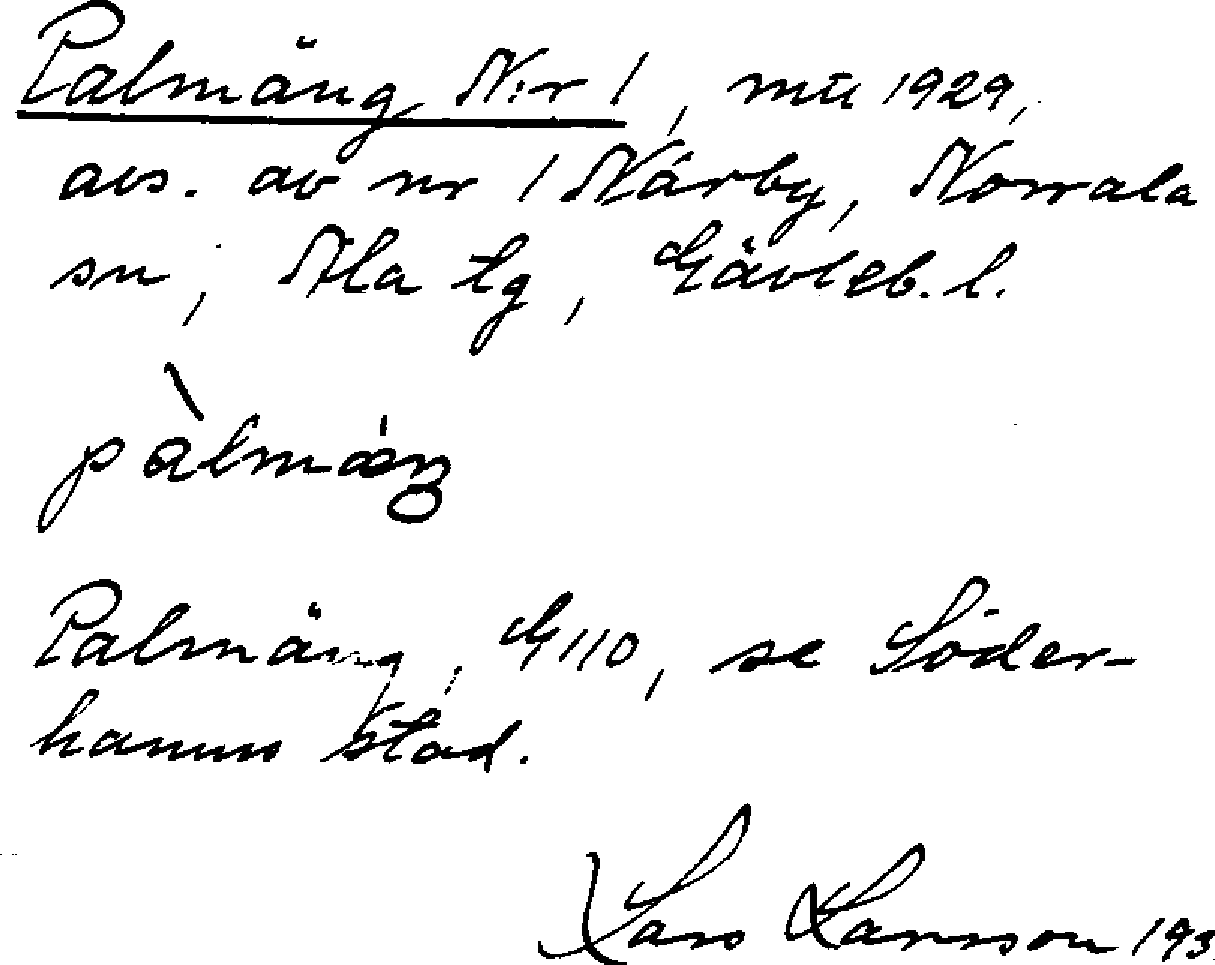 Palmäng N:r 1, mtl 1929,
avs. av nr 1 Närby, Norrala
sn, Ala tg, Gävleb. l.
pàlmáŋ
Palmäng, G110, se Söder-
hamns stad.
Lars Larsson 193